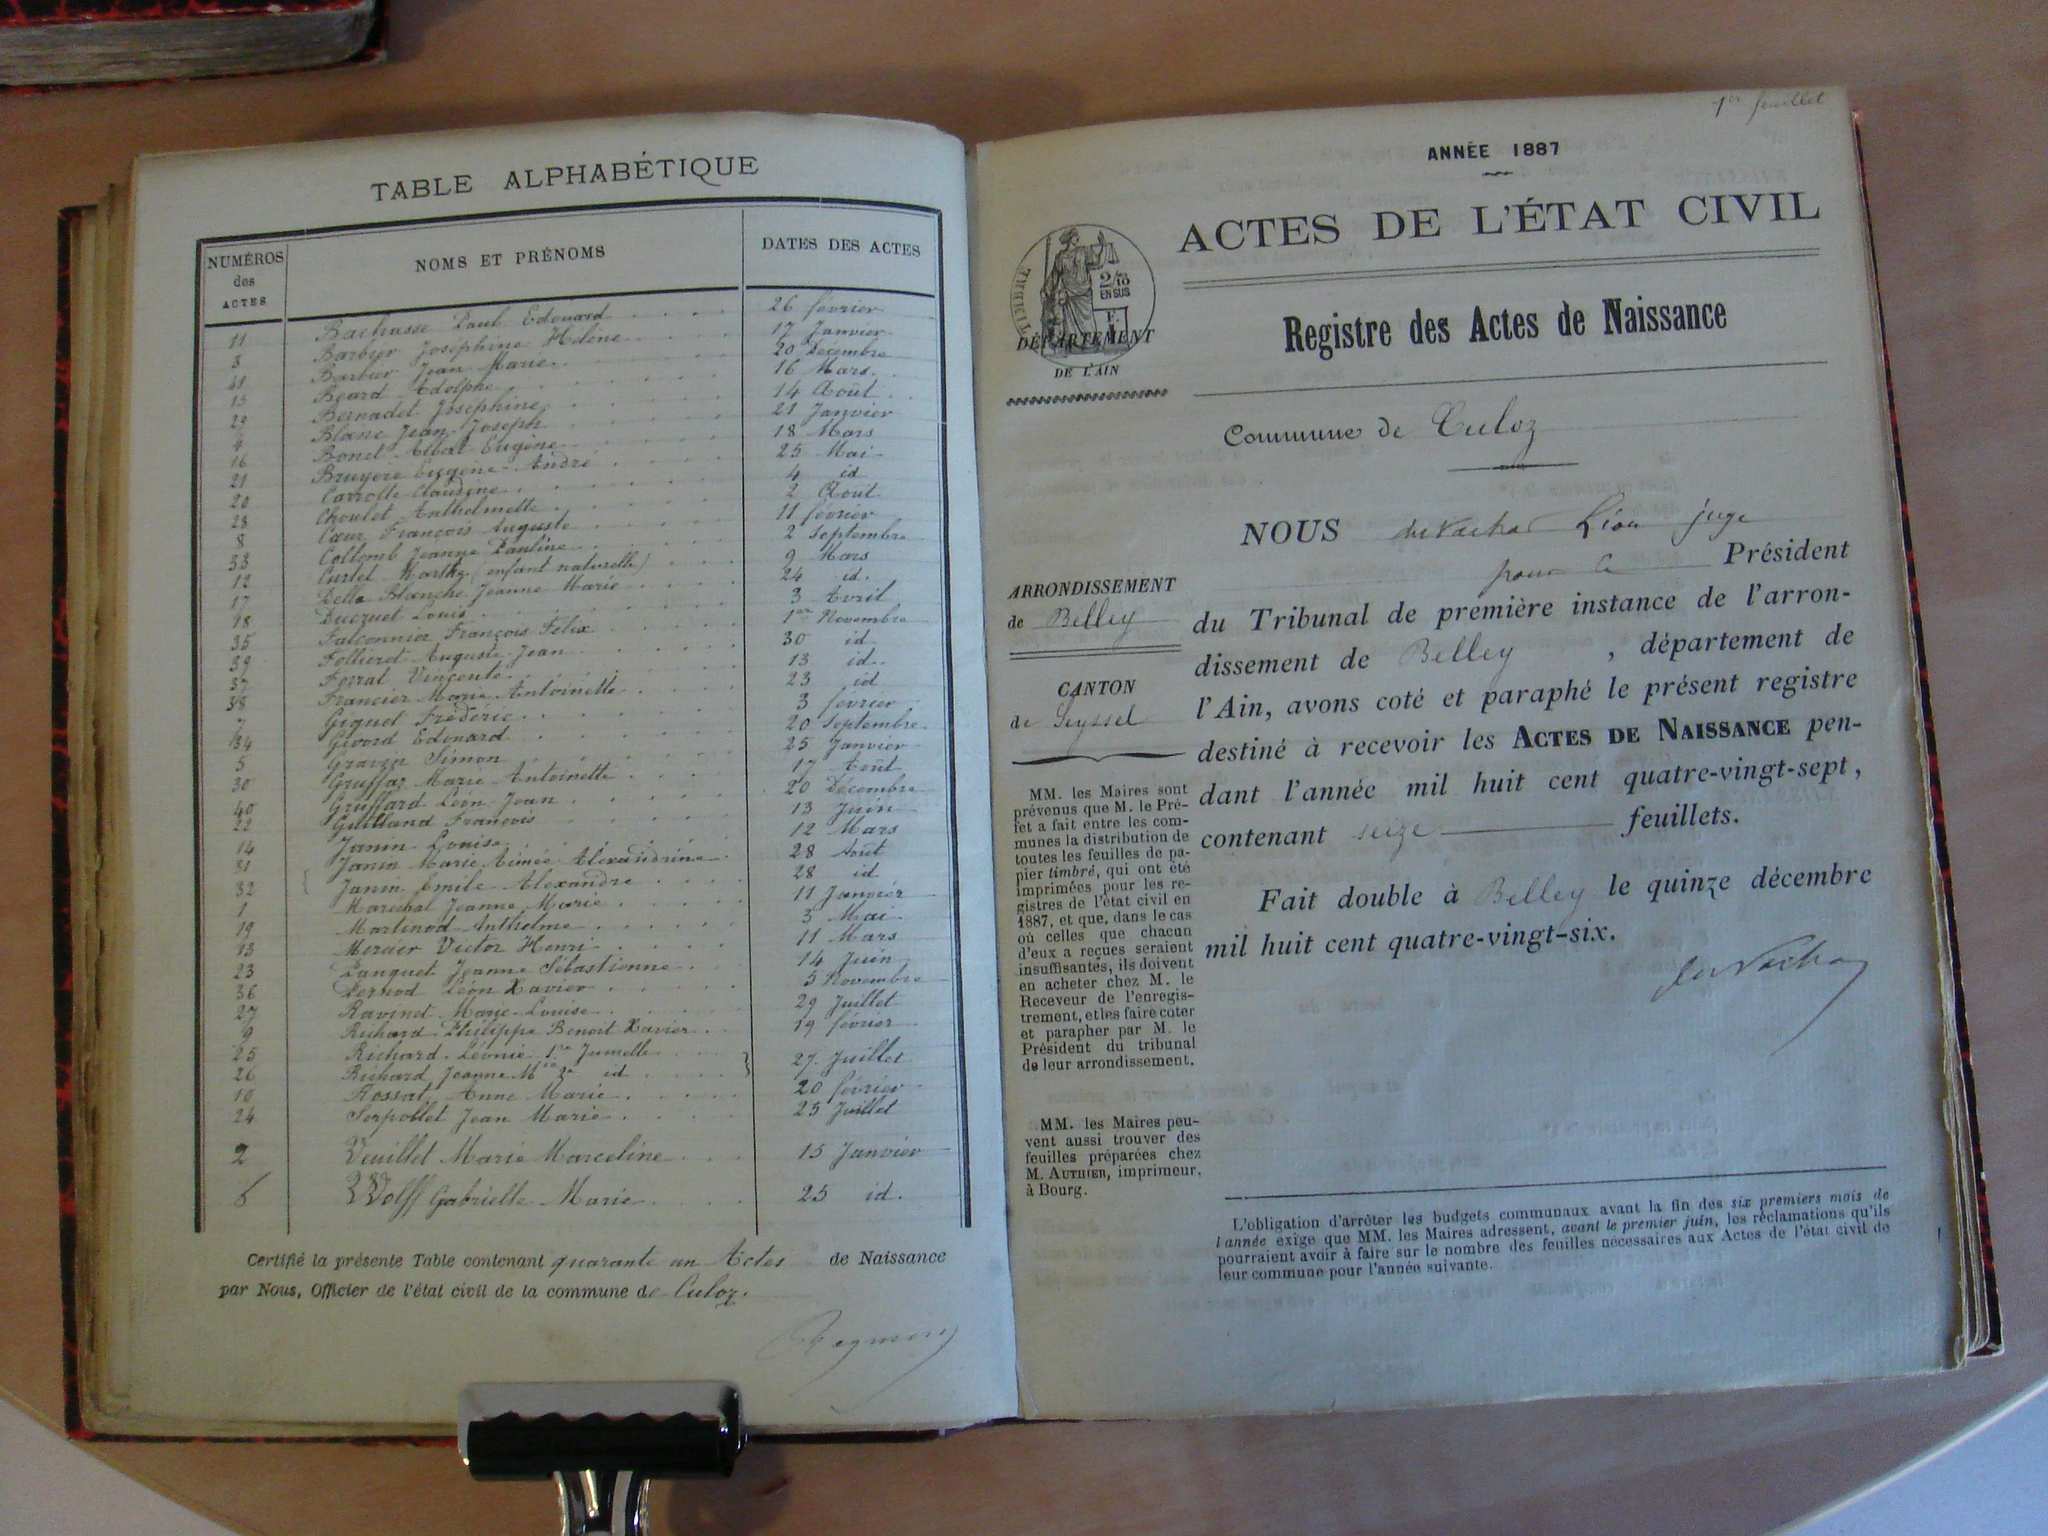 TABLE ALPHABÉTIQUE
NUMÉROS des ACTES NOMS ET PRÉNOMS DATES DES ACTES
11 Bachasse Paul Edouard 26 février
3 Barbier Joséphine Hélène 17 Janvier
41 Barbier Jean Marie 20 Décembre
15 Béard Adolphe 16 Mars
29 Bernadet Joséphine 14 Août
4 Blanc Jean Joseph 21 Janvier
16 Bonet Albert Eugène 18 Mars
21 Bruyère Eugène André 25 Mai
20 Carrotte Claudine 4 id
28 Choulet Anthelmette 2 Août
8 Cœur François Auguste 11 février
33 Collomb Jeanne Pauline 2 Septembre
12 Curtet Marthe (enfant naturelle) 9 Mars
17 Della Blanche Jeanne Marie 24 id.
18 Ducruet Louis 3 Avril
35 Falconnier François Félix 1er Novembre
39 Follieret Auguste Jean 30 id
37 Forrat Vincente 13 id.
38 Francier Marie Antoinette 23 id
7 Giquet Frédéric 3 février
34 Givord Edouard 20 Septembre
5 Graven Simon 25 Janvier
30 Gruffaz Marie Antoinette 17 Août
40 Gruffard Léon Jean 20 Décembre
22 Guilland François 13 Juin
14 Janin Louise 12 Mars
31 Janin Marie Aimée Alexandrine 28 Août
32 Janin Emile Alexandre 28 id
1 Maréchal Jeanne Marie 11 Janvier
19 Martinod Anthelme 3 Mai
13 Mercier Victor Henri 11 Mars
23 Panquet Jeanne Sébastienne 14 Juin
36 Pernod Léon Xavier 5 Novembre
27 Ravinet Marie Louise 29 Juillet
9 Richard Philippe Benoit Xavier 19 février
25 Richard Léonie 1re Jumelle
26 Richard Jeanne Mie 2e id 27 Juillet
10 Rossat Anne Marie 20 février
24 Serpollet Jean Marie 25 Juillet
2 Veuillet Marie Marceline 15 Janvier
6 Wolff Gabrielle Marie 25 id.
Certifié la présente Table contenant quarante un Actes de Naissance
par Nous, Officier de l'état civil de la commune de Culoz.
1er feuillet
ANNÉE 1887
ACTES DE L'ÉTAT CIVIL
2/10
EN SUS
DÉPARTEMENT
DE L'AIN
Registre des Actes de Naissance
Commune de Culoz
NOUS Léon juge
pour le Président
du Tribunal de première instance de l'arron-
dissement de Belley, département de
l'Ain, avons coté et paraphé le présent registre
destiné à recevoir les ACTES DE NAISSANCE pen-
dant l'année mil huit cent quatre-vingt-sept,
contenant seize feuillets.
Fait double à Belley le quinze décembre
mil huit cent quatre-vingt-six.
ARRONDISSEMENT
de Belley
CANTON
de Seyssel
MM. les Maires sont
prévenus que M. le Pré-
fet a fait entre les com-
munes la distribution de
toutes les feuilles de pa-
pier timbré, qui ont été
imprimées pour les re-
gistres de l'état civil en
1887, et que, dans le cas
où celles que chacun
d'eux a reçues seraient
insuffisantes, ils doivent
en acheter chez M. le
Receveur de l'enregis-
trement, et les faire coter
et parapher par M. le
Président du tribunal
de leur arrondissement.
MM. les Maires peu-
vent aussi trouver des
feuilles préparées chez
M. AUTHIER, imprimeur,
à Bourg.
L'obligation d'arrêter les budgets communaux avant la fin des six premiers mois de
l'année exige que MM. les Maires adressent, avant le premier juin, les réclamations qu'ils
pourraient avoir à faire sur le nombre des feuilles nécessaires aux Actes de l'état civil de
leur commune pour l'année suivante.